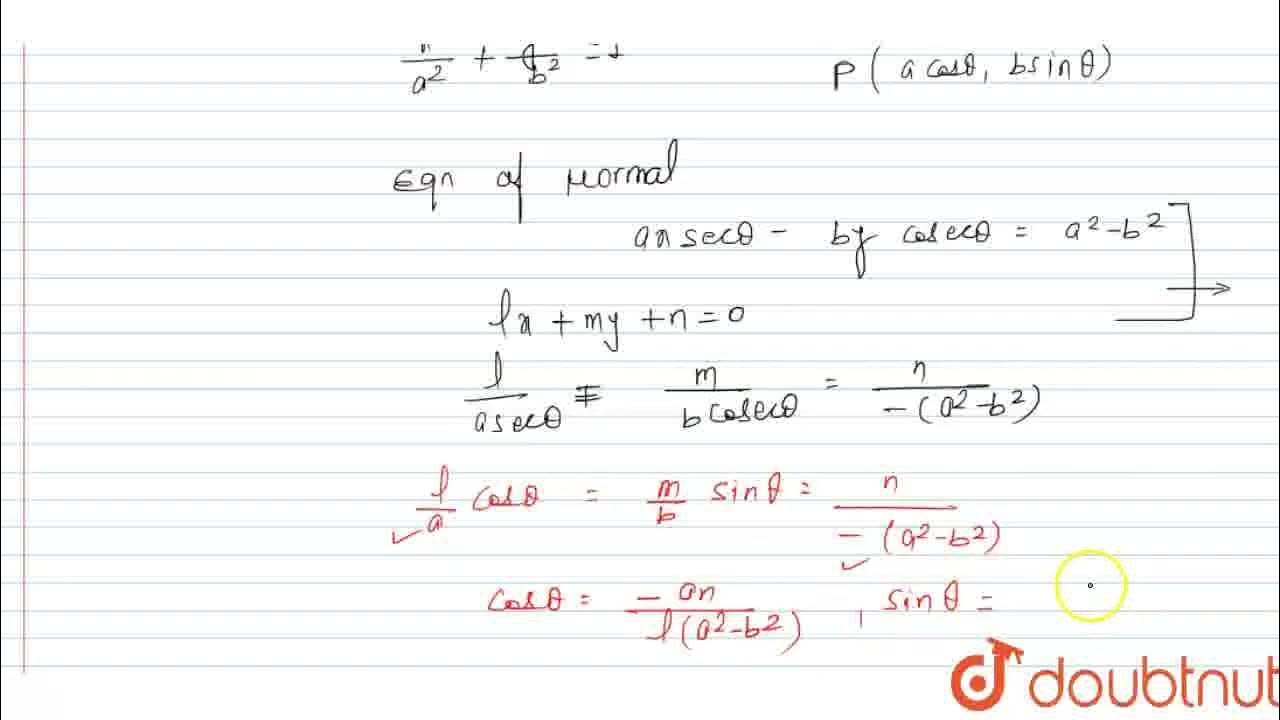 /a² + /b² =
P ( a cosθ, b sinθ )
Eqn of normal
ax secθ - by cosecθ = a² - b²
lx + my + n = 0
l/a secθ = m/b cosecθ = n/-(a² - b²)
l/a cosθ = m/b sinθ = n/-(a² - b²)
cosθ = -an/l(a² - b²) , sinθ =
doubtnut